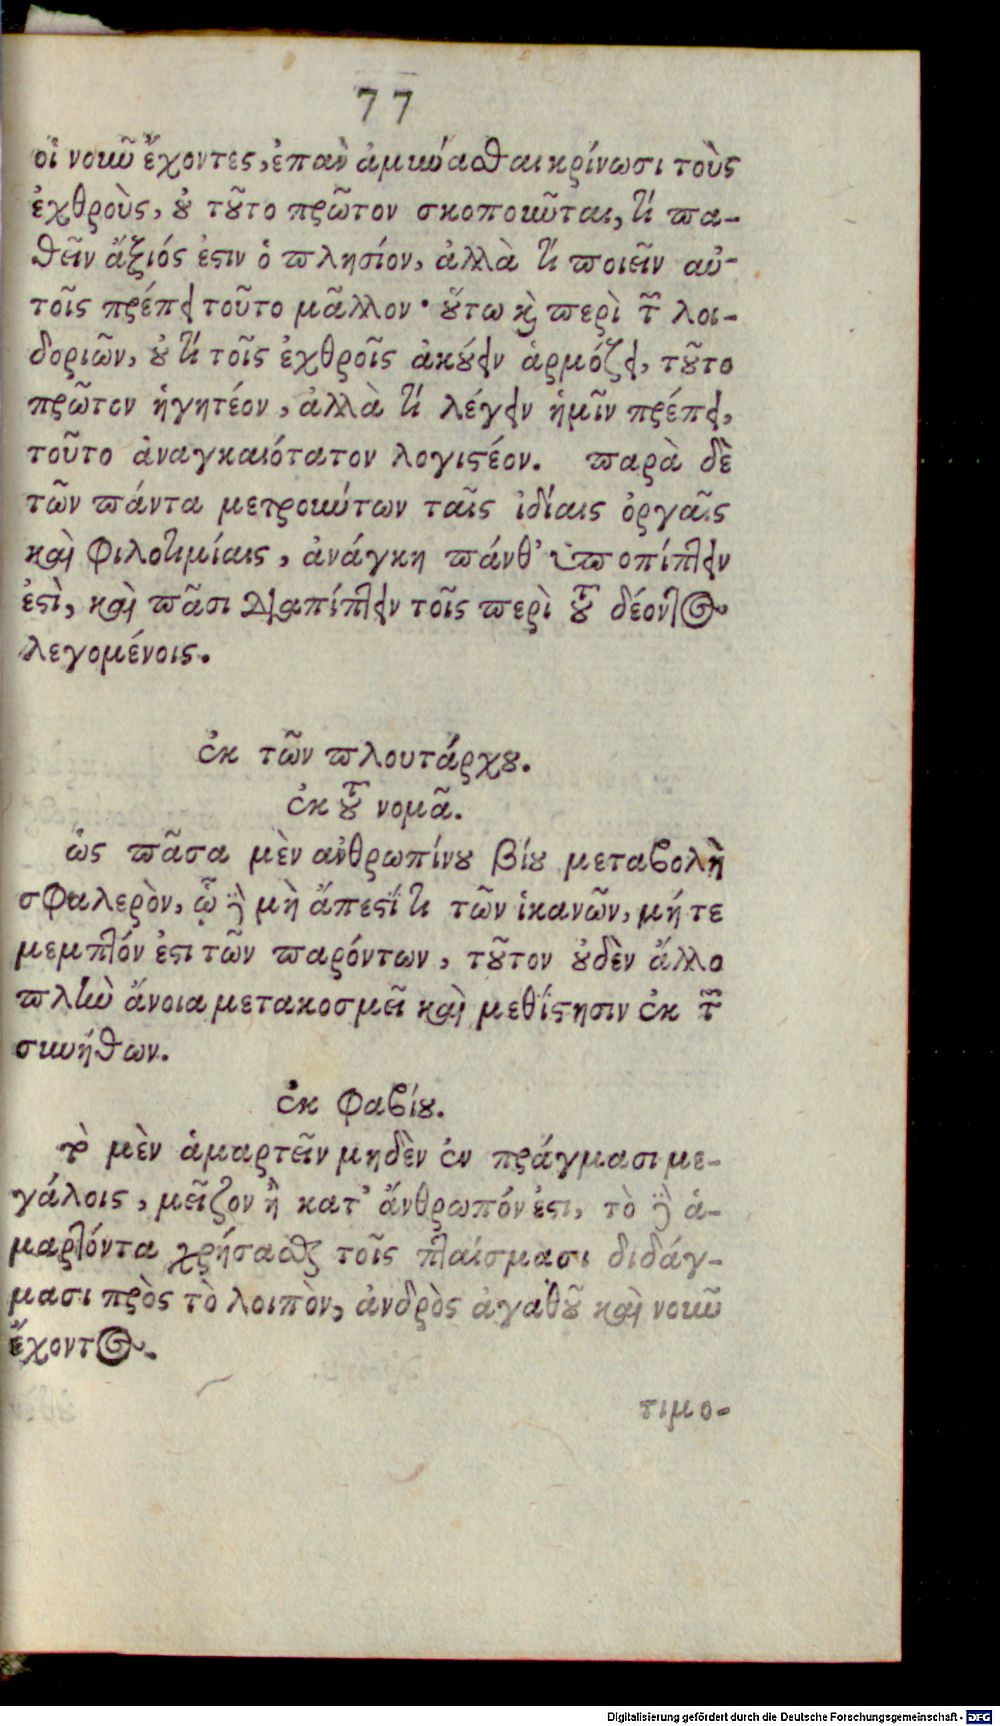 77
οἱ νοῦν ἔχοντες, ἐπὰν ἀμύνασθαι κρίνωσι τοὺς
ἐχθροὺς, ȣ̓ τȣ͂το πρῶτον σκοποῦνται, τί πα-
θεῖν ἄξιός ἐϛιν ὁ πλησίον, ἀλλὰ τί ποιεῖν αὐ-
τοῖς πρέπει τοῦτο μᾶλλον· ȣ̔́τω ϗ περὶ τῶν λοι-
δοριῶν, ȣ̓ τί τοῖς ἐχθροῖς ἀκȣ́ειν ἁρμόζει, τȣ͂το
πρῶτον ἡγητέον, ἀλλὰ τί λέγειν ἡμῖν πρέπει,
τοῦτο ἀναγκαιότατον λογιϛέον. παρὰ δὲ
τῶν πάντα μετρούντων ταῖς ἰδίαις ὀργαῖς
καὶ φιλοτιμίαις, ἀνάγκη πάνθ’ ὑποπίπτειν
ἐϛὶ, καὶ πᾶσι διαπίπτειν τοῖς περὶ τȣ͂ δέοντος
λεγομένοις.
ἐκ τῶν πλουτάρχȣ.
ἐκ τȣ͂ νομᾶ.
ὡς πᾶσα μὲν ἀνθρωπίνȣ βίȣ μεταβολὴ
σφαλερὸν, ᾧ δὲ μὴ ἄπεϛί τι τῶν ἱκανῶν, μήτε
μεμπτόν ἐϛι τῶν παρόντων, τȣ͂τον ȣ̓δὲν ἄλλο
πλὴν ἄνοια μετακοσμεῖ καὶ μεθίϛησιν ἐκ τῶν
συνήθων.
ἐκ φαβίȣ.
τὸ μὲν ἁμαρτεῖν μηδὲν ἐν πράγμασι με-
γάλοις, μεῖζον ἢ κατ’ ἄνθρωπόν ἐϛι, τὸ δὲ ἁ-
μαρτόντα χρήσασθαι τοῖς πταίσμασι διδάγ-
μασι πρὸς τὸ λοιπὸν, ἀνδρὸς ἀγαθȣ͂ καὶ νοῦν
ἔχοντος.
τιμο-
Digitalisierung gefördert durch die Deutsche Forschungsgemeinschaft - DFG